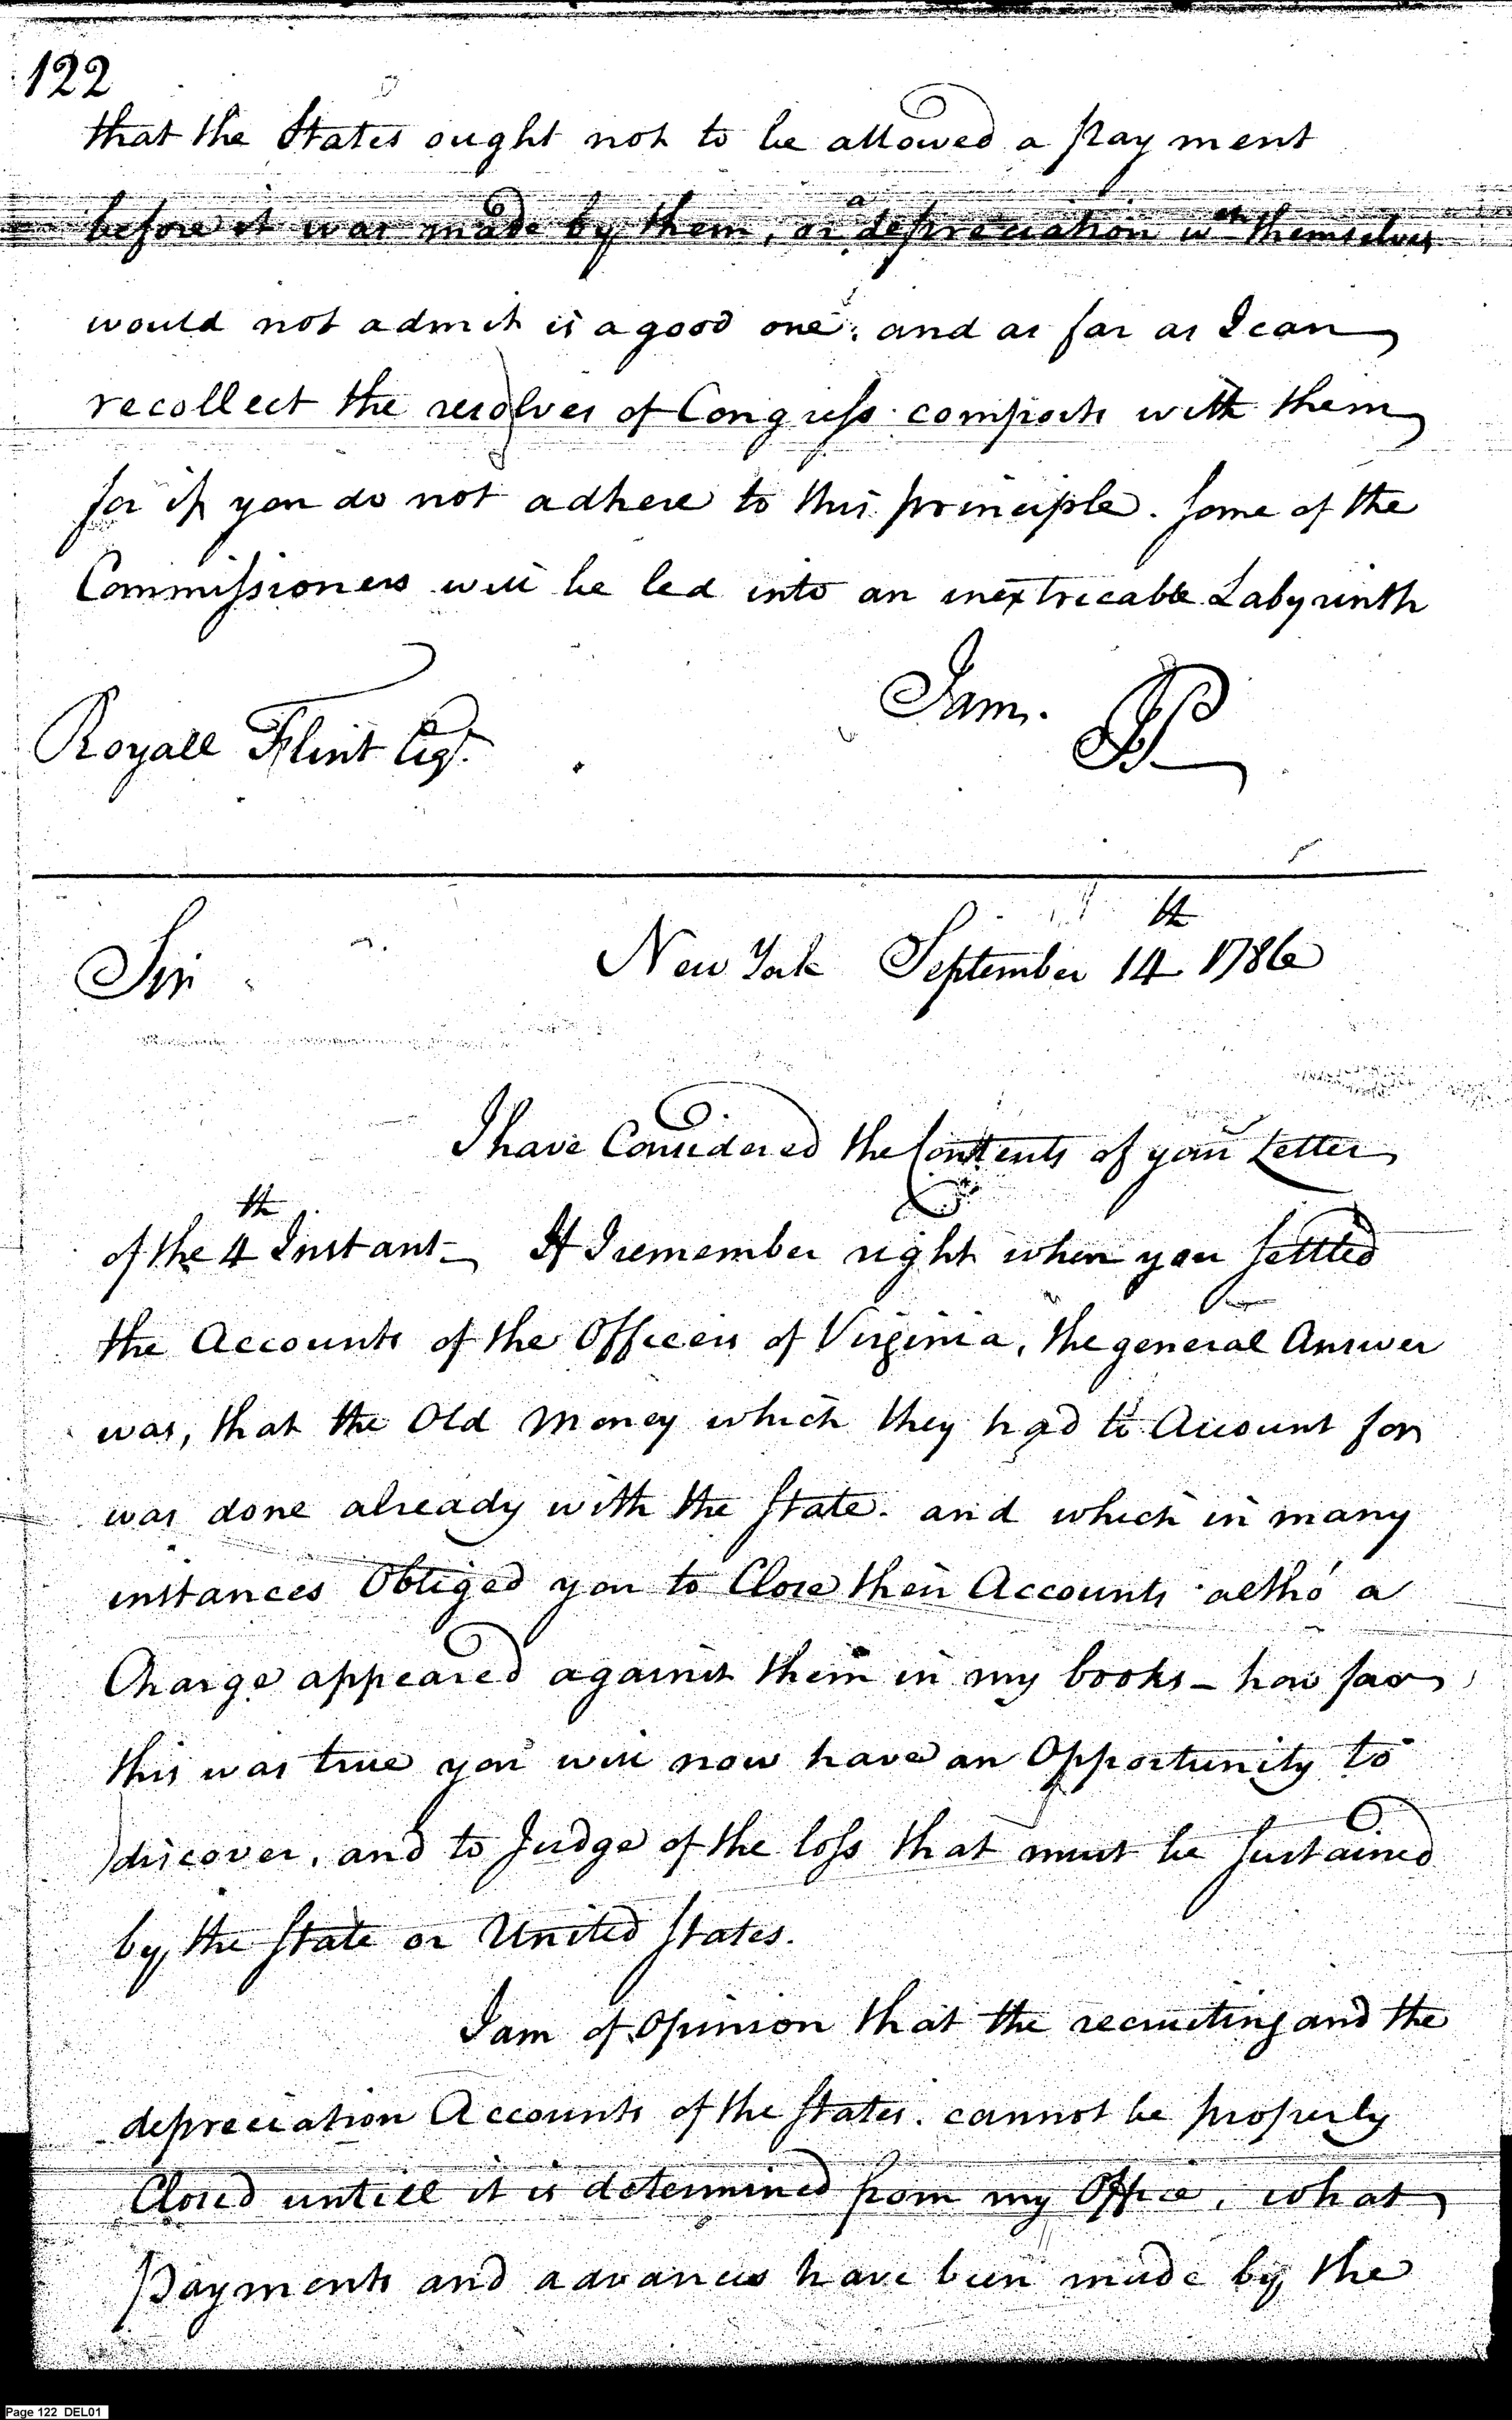 122
that the States ought not to be allowed a payment
before it was made by them, or a depreciation wch themselves
would not admit is a good one, and as far as I can
recollect the resolves of Congress comports with them
for if you do not adhere to this principle. some of the
Commissioners will be led into an inextricable Labyrinth
I am.
Royall Flint Esqr.
Sir
New York September 14th 1786
I have Considered the Contents of your Letter
of the 4th Instant- If I remember right when you settled
the Accounts of the Officers of Virginia, the general Answer
was, that the Old Money which they had to Account for
was done already with the State. and which in many
instances Obliged you to Close their Accounts altho' a
Charge appeared against them in my books - how far
this was true you will now have an Opportunity to
discover, and to Judge of the loss that must be sustained
by the State or United States.
I am of Opinion that the recruiting and the
depreciation Accounts of the States. cannot be properly
Closed untill it is determined from my Office, what
payments and advances have been made by the
Page 122 DEL01